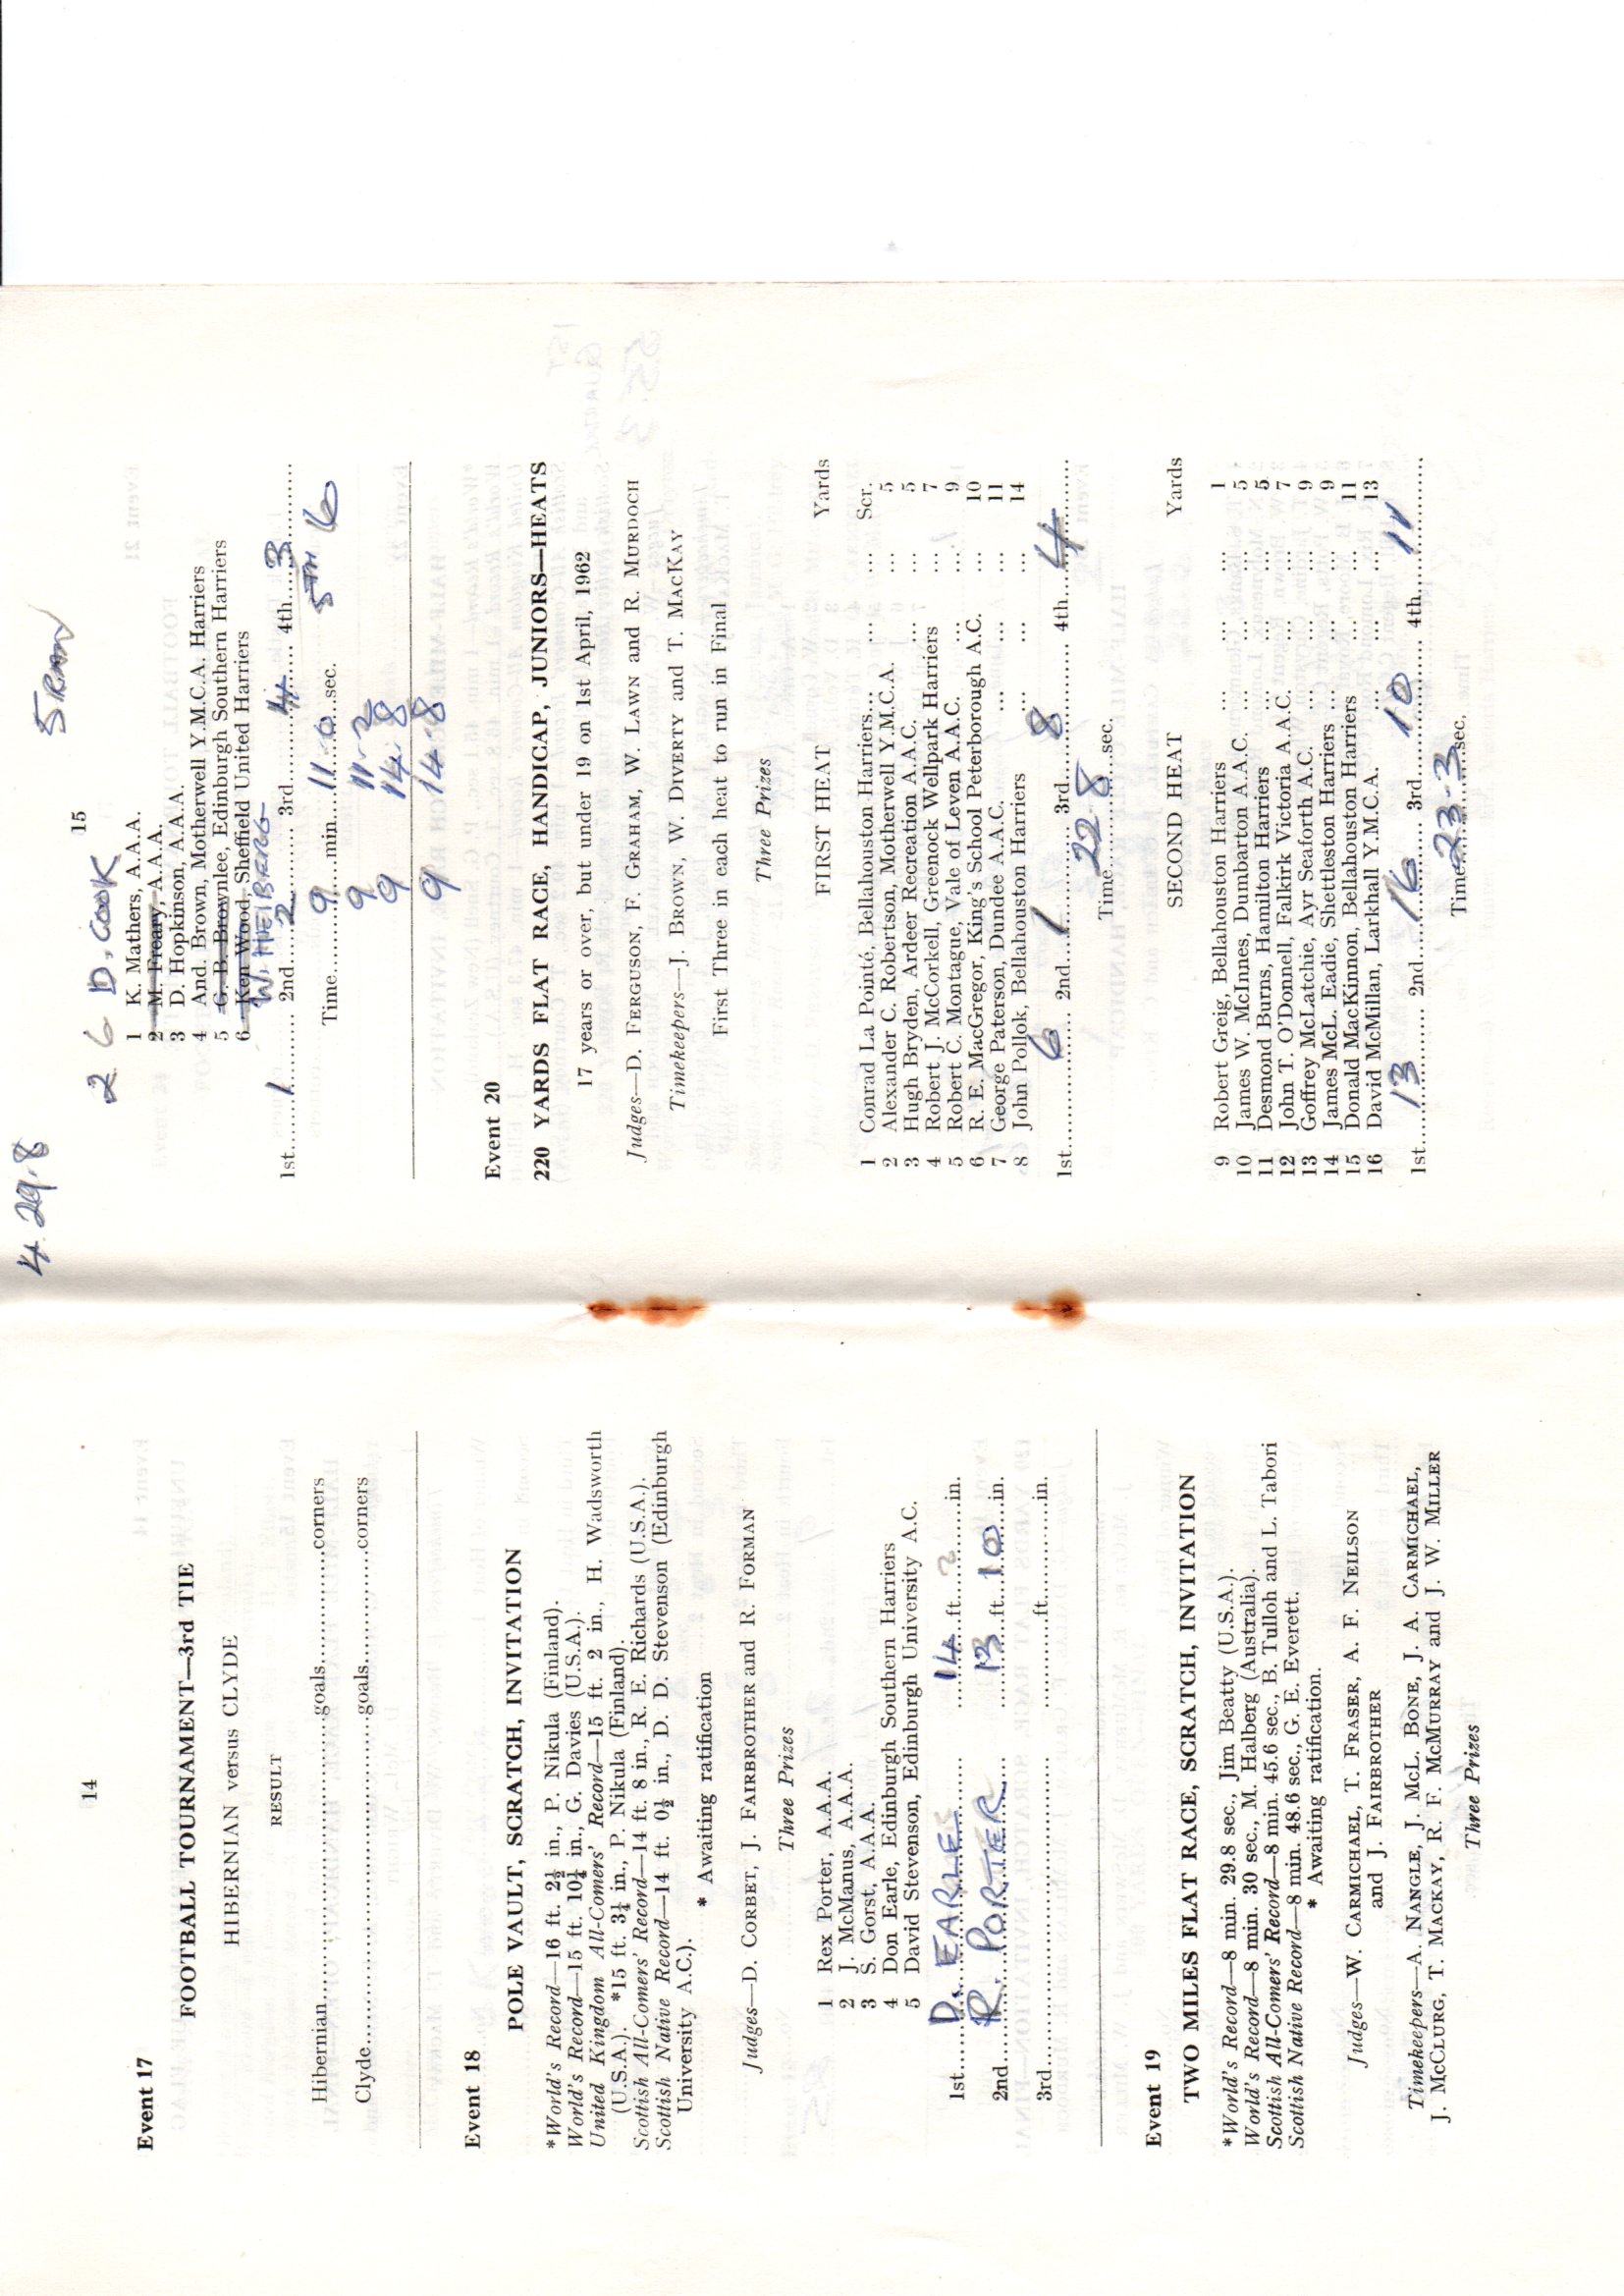 14
Event 17
FOOTBALL TOURNAMENT—3rd TIE
HIBERNIAN versus CLYDE
RESULT
Hibernian..............................goals..............corners
Clyde..............................goals..............corners
Event 18
POLE VAULT, SCRATCH, INVITATION
*World's Record—16 ft. 2½ in., P. Nikula (Finland).
World's Record—15 ft. 10¼ in., G. Davies (U.S.A.).
United Kingdom All-Comers' Record—15 ft. 2 in., H. Wadsworth
(U.S.A.). *15 ft. 3¼ in., P. Nikula (Finland).
Scottish All-Comers' Record—14 ft. 8 in., R. E. Richards (U.S.A.).
Scottish Native Record—14 ft. 0½ in., D. D. Stevenson (Edinburgh
University A.C.).
* Awaiting ratification
Judges—D. CORBET, J. FAIRBROTHER and R. FORMAN
Three Prizes
1 Rex Porter, A.A.A.
2 J. McManus, A.A.A.
3 S. Gorst, A.A.A.
4 Don Earle, Edinburgh Southern Harriers
5 David Stevenson, Edinburgh University A.C.
1st....D. EARLE.... 14 ft. 2 in.
2nd....R. PORTER.... 13 ft. 10 in.
3rd.............................. ........ft.........in.
Event 19
TWO MILES FLAT RACE, SCRATCH, INVITATION
*World's Record—8 min. 29.8 sec., Jim Beatty (U.S.A.).
World's Record—8 min. 30 sec., M. Halberg (Australia).
Scottish All-Comers' Record—8 min. 45.6 sec., B. Tulloh and L. Tabori
Scottish Native Record—8 min. 48.6 sec., G. E. Everett.
* Awaiting ratification.
Judges—W. CARMICHAEL, T. FRASER, A. F. NEILSON
and J. FAIRBROTHER
Timekeepers—A. NANGLE, J. MCL. BONE, J. A. CARMICHAEL,
J. MCCLURG, T. MACKAY, R. F. MCMURRAY and J. W. MILLER
Three Prizes
4.29.8
15
2 6 D. COOK
1 K. Mathers, A.A.A.
2 M. Freary, A.A.A.
3 D. Hopkinson, A.A.A.
4 And. Brown, Motherwell Y.M.C.A. Harriers
5 G. B. Brownlee, Edinburgh Southern Harriers
6 Ken Wood, Sheffield United Harriers
1st....1.... 2nd....2.... 3rd....4.... 4th....3....
5TH 6
Time....9....min....11.0....sec.
9 11.2
9 14.8
9 14.8
Event 20
220 YARDS FLAT RACE, HANDICAP, JUNIORS—HEATS
17 years or over, but under 19 on 1st April, 1962
Judges—D. FERGUSON, F. GRAHAM, W. LAWN and R. MURDOCH
Timekeepers—J. BROWN, W. DIVERTY and T. MACKAY
First Three in each heat to run in Final
Three Prizes
FIRST HEAT Yards
1 Conrad La Pointé, Bellahouston Harriers... ... ... Scr.
2 Alexander C. Robertson, Motherwell Y.M.C.A. ... 5
3 Hugh Bryden, Ardeer Recreation A.A.C. ... ... 5
4 Robert J. McCorkell, Greenock Wellpark Harriers ... 7
5 Robert C. Montague, Vale of Leven A.A.C. ... ... 9
6 R. E. MacGregor, King's School Peterborough A.C. ... 10
7 George Paterson, Dundee A.A.C. ... ... ... 11
8 John Pollok, Bellahouston Harriers ... ... ... 14
1st....6.... 2nd....1.... 3rd....8.... 4th....4....
Time....22.8....sec.
SECOND HEAT Yards
9 Robert Greig, Bellahouston Harriers ... ... ... 1
10 James W. McInnes, Dumbarton A.A.C. ... ... ... 5
11 Desmond Burns, Hamilton Harriers ... ... ... 5
12 John T. O'Donnell, Falkirk Victoria A.A.C. ... ... 7
13 Goffrey McLatchie, Ayr Seaforth A.C. ... ... ... 9
14 James McL. Eadie, Shettleston Harriers ... ... ... 9
15 Donald MacKinnon, Bellahouston Harriers ... ... 11
16 David McMillan, Larkhall Y.M.C.A. ... ... ... 13
1st....13.... 2nd....16.... 3rd....10.... 4th....11....
Time....23.3....sec.